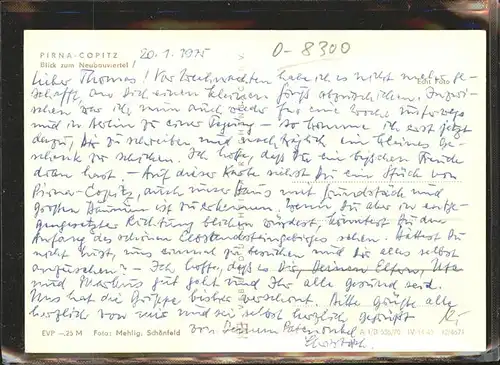 PIRNA-COPITZ
Blick zum Neubauviertel
20.1.1975
0-8300
Echt Foto
Lieber Thomas! Vor Weihnachten habe ich es nicht mehr ge-
schafft, an Dich einen kleinen Gruß abzuschicken. Inzwi-
schen war ich nun auch wieder für eine Woche unterwegs
und in Berlin zu einer Tagung – so komme ich erst jetzt
dazu, Dir zu schreiben und nachträglich ein kleines Ge-
schenk zu schicken. Ich hoffe, daß Du ein bißchen Freude
dran hast. – Auf dieser Karte siehst Du ein Stück von
Pirna-Copitz, auch unser Haus mit Grundstück und
großen Bäumen ist zu erkennen. Wenn Du aber in entge-
gengesetzter Richtung blicken würdest, könntest Du den
Anfang des schönen Elbsandsteingebirges sehen. Hättest Du
nicht Lust, uns einmal zu besuchen und Dir alles selbst
anzusehen? – Ich hoffe, daß es Dir, Deinen Eltern, Uta
und Markus gut geht und Ihr alle gesund seid.
Uns hat die Grippe bisher verschont. Bitte grüße alle
herzlich von mir und sei selbst herzlich gegrüßt
von Deinem Patenonkel
EVP –.25 M Foto: Mehlig, Schönfeld